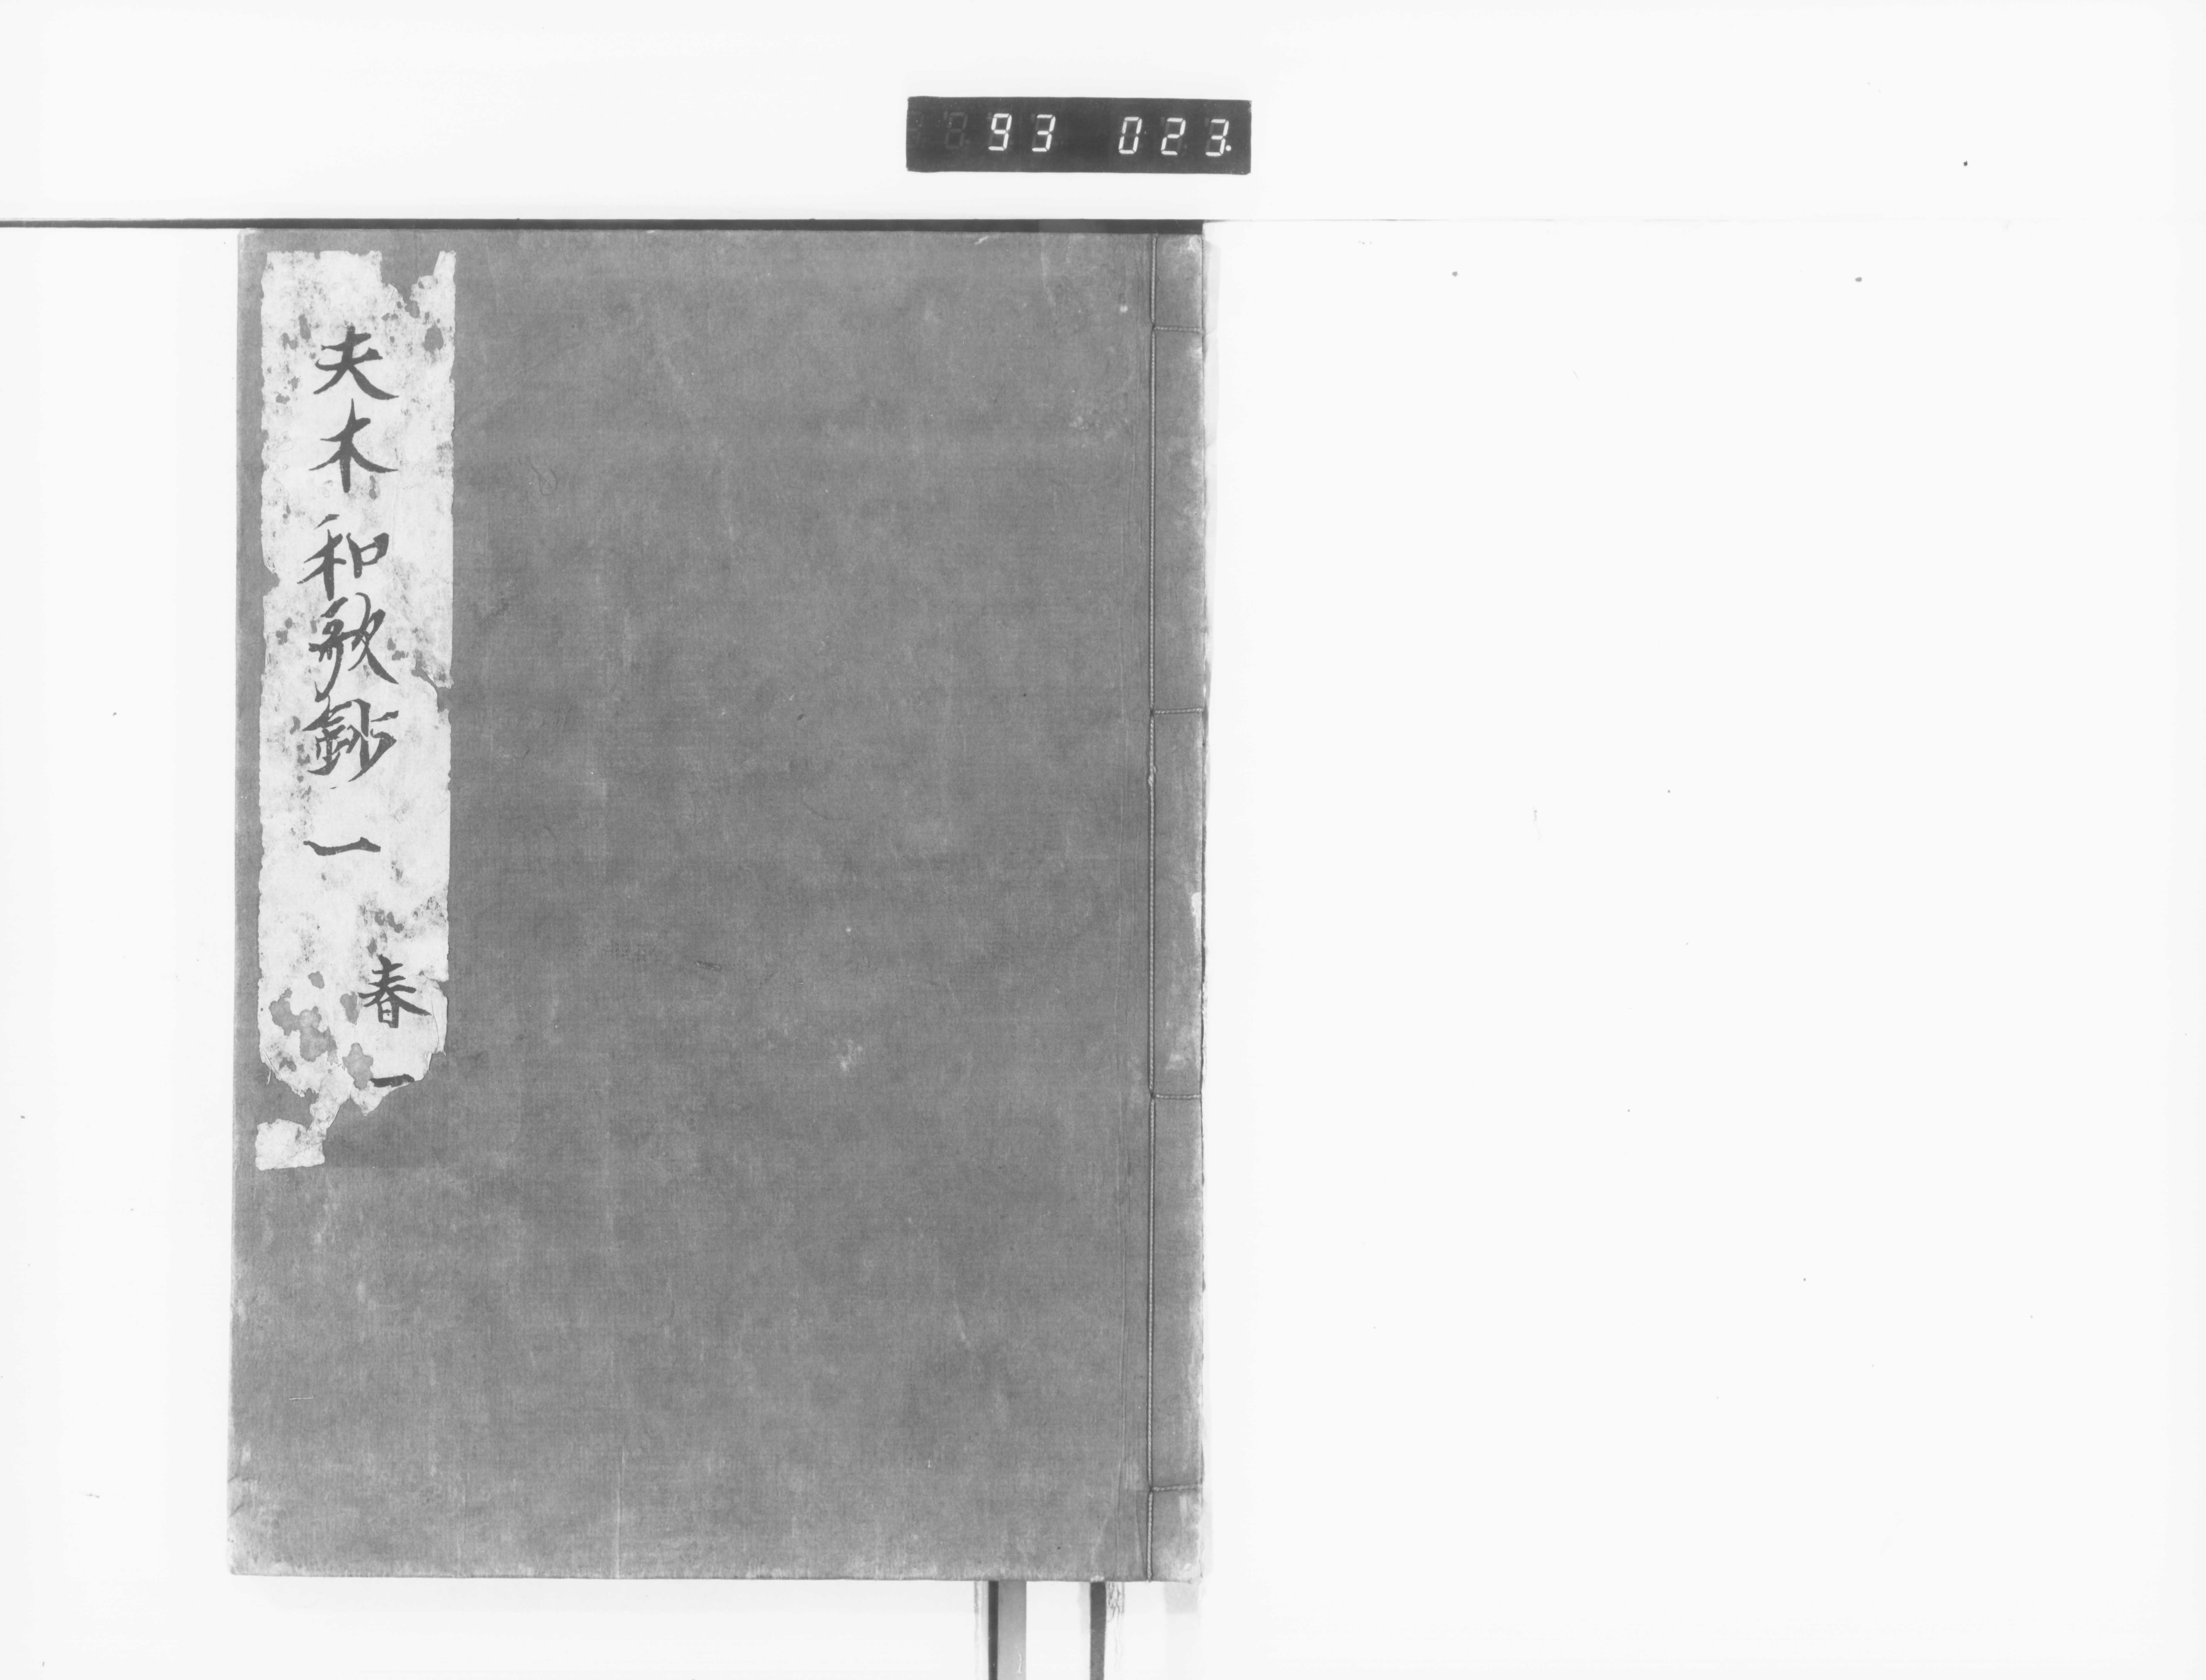 93 023.
夫木和歌鈔 一
春一